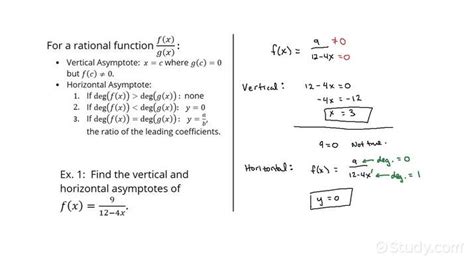 For a rational function f(x)/g(x):
• Vertical Asymptote: x = c where g(c) = 0
but f(c) ≠ 0.
• Horizontal Asymptote:
1. If deg(f(x)) > deg(g(x)): none
2. If deg(f(x)) < deg(g(x)): y = 0
3. If deg(f(x)) = deg(g(x)): y = a/b,
the ratio of the leading coefficients.
Ex. 1: Find the vertical and
horizontal asymptotes of
f(x) = 9/(12−4x).
f(x) = 9/(12-4x) ≠0 =0
Vertical: 12-4x=0
-4x=-12
x = 3
9=0 Not true.
Horizontal: f(x) = 9/(12-4x¹) ← deg. = 0 ← deg. = 1
y = 0
Study.com